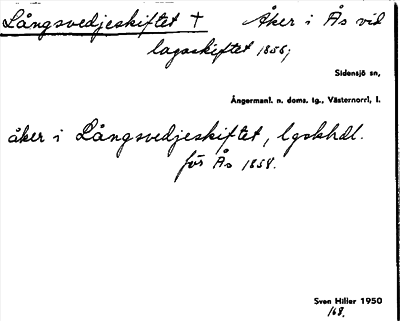 Långsvedjeskiftet † Åker i Ås vid
lagaskiftet 1856;
Sidensjö sn,
Ångermanl. n. doms. tg., Västernorrl, l.
åker i Långsvedjeskiftet, lgskhdl.
för Ås 1858.
Sven Hiller 1950
168.